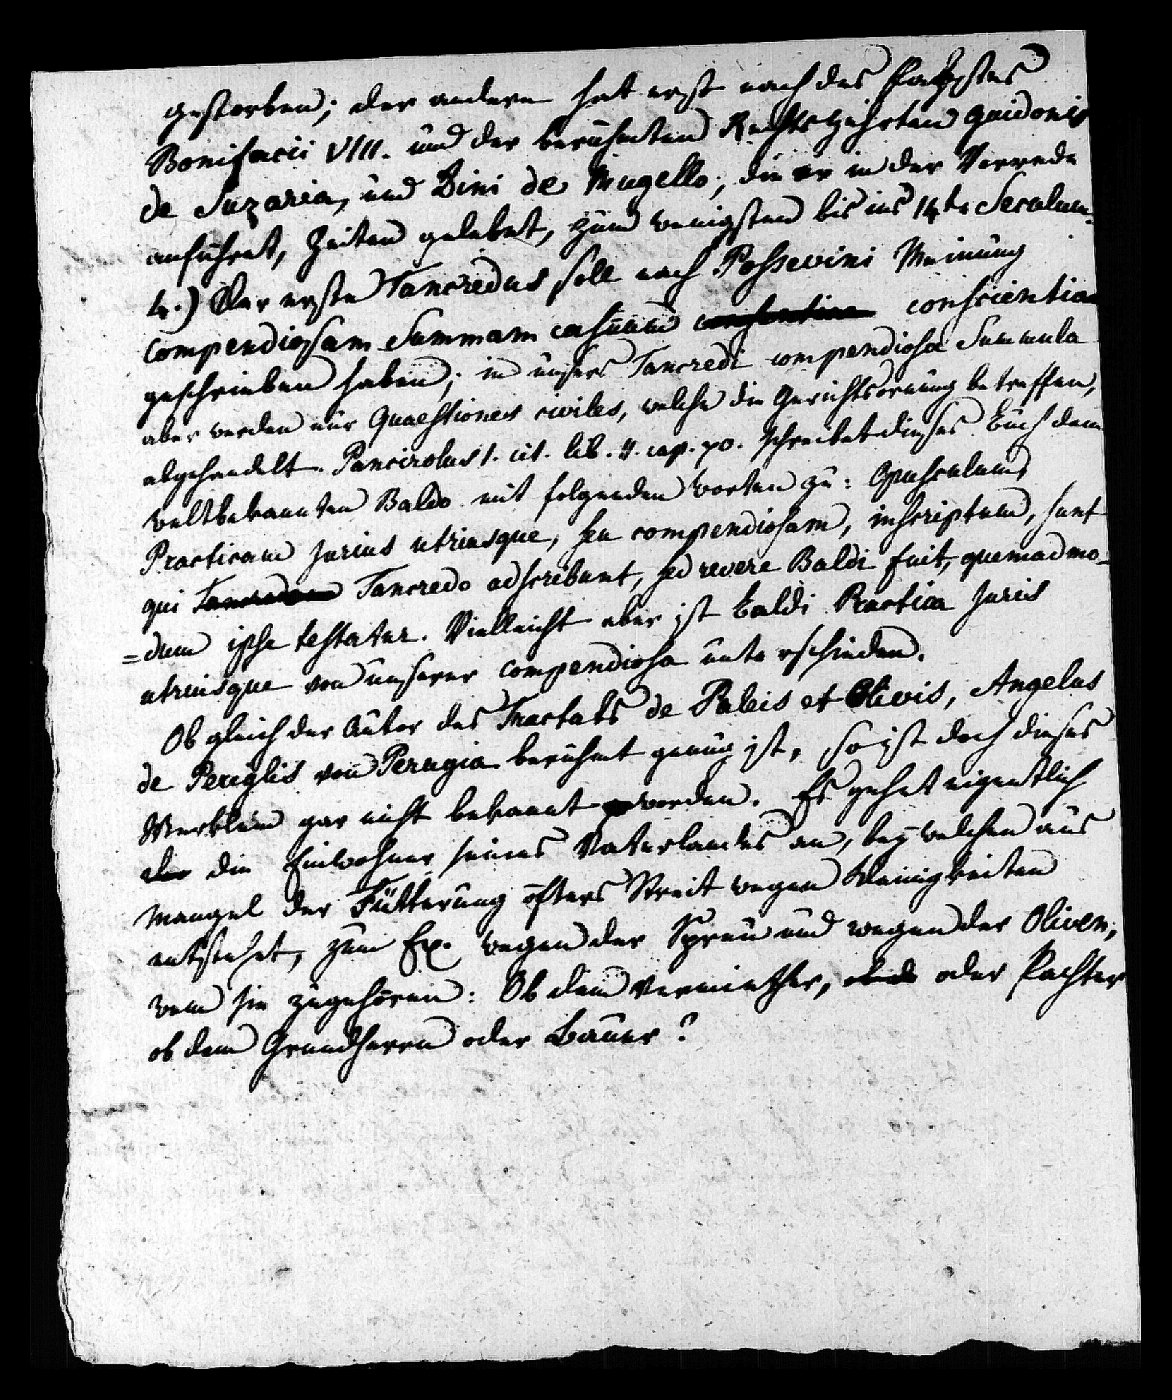 gestorben; der andere hat erst nach des Pabstes
Bonifacii VIII. und der berühmten Rechtsgelehrten Guidonis
de Suzaria, und Dini de Mugello, die er in der Vorrede
anführet, Zeiten gelebet, zum wenigsten bis ins 14te Seculum.
4.) Der erste Tancredus soll nach Possevini Meinung
compendiosam Summam casuum conscientiae
geschrieben haben; in unsers Tancredi compendiosa Summula
aber werden nur Quaestiones civiles, welche die Gerichtsornung betreffen,
abgehandelt. Pancirolus l. cit. lib. II. cap. 70. schreibet dieses Buch dem
weltbekannten Baldo mit folgenden worten zu: Opusculum,
Practicam Juris utriusque, seu compendiosam, inscriptum, sunt
qui Tancredo adscribunt, sed revere Baldi fuit, quemadmo-
=dum ipse testatur. Vielleicht aber ist Baldi Practica Juris
utriusque von unserer compendiosa unterschieden.
Ob gleich der Autor des Tractats de Paleis et Olivis, Angelus
de Periglis von Perugia berühmt genug ist, so ist doch dieses
Werklein gar nicht bekannt worden. Es gehet eigentlich
die Einwohner seines Vaterlandes an, bey welchen aus
Mangel der Fütterung öfters Streit wegen Wenigkeiten
entstehet, zum Ex. wegen der Spreu und wegen der Oliven,
wem sie zugehören: Ob dem Vermiether, oder Pachter
ob dem Grundherrn oder Bauer?